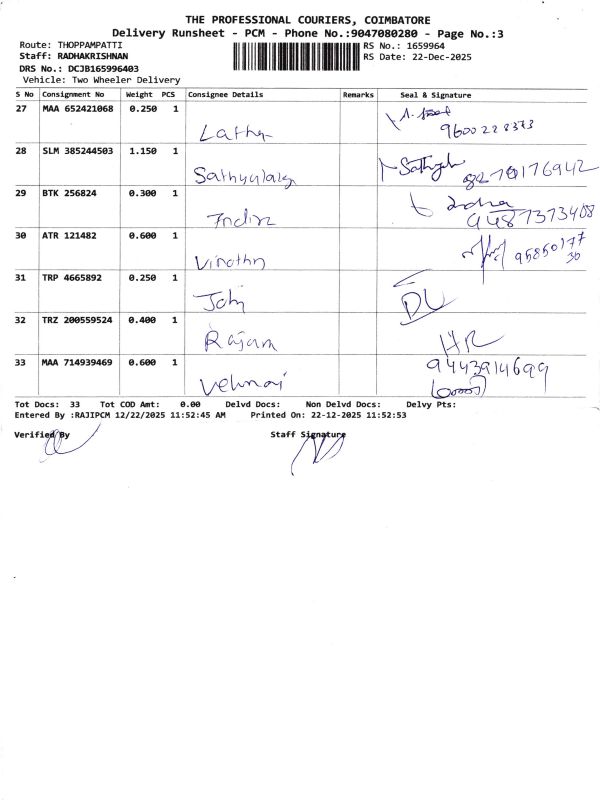 THE PROFESSIONAL COURIERS, COIMBATORE
Delivery Runsheet - PCM - Phone No.:9047080280 - Page No.:3
Route: THOPPAMPATTI
RS No.: 1659964
Staff: RADHAKRISHNAN
RS Date: 22-Dec-2025
DRS No.: DCJB165996403
Vehicle: Two Wheeler Delivery
S No Consignment No Weight PCS Consignee Details Remarks Seal & Signature
27 MAA 652421068 0.250 1
Latha
9600228373
28 SLM 385244503 1.150 1
29 BTK 256824 0.300 1
Indira
9487373408
30 ATR 121482 0.600 1
31 TRP 4665892 0.250 1
DL
32 TRZ 200559524 0.400 1
Rajam
33 MAA 714939469 0.600 1
9443914699
Tot Docs: 33 Tot COD Amt: 0.00 Delvd Docs: Non Delvd Docs: Delvy Pts:
Entered By :RAJIPCM 12/22/2025 11:52:45 AM Printed On: 22-12-2025 11:52:53
Verified By Staff Signature